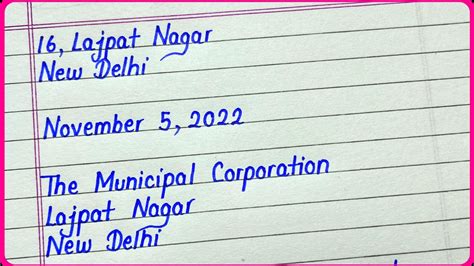 16, Lajpat Nagar
New Delhi
November 5, 2022
The Municipal Corporation
Lajpat Nagar
New Delhi